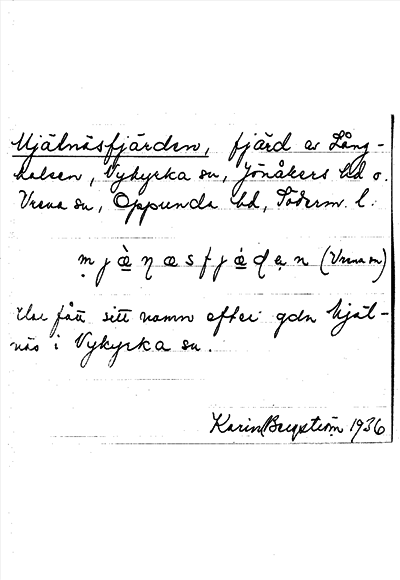 Mjälnäsfjärden, fjärd av Lång-
halsen, Vykyrka sn, Jönåkers hd o.
Vrena sn, Oppunda hd, Söderm. l.
(Vrena sn)
Har fått sitt namn efter gdn Mjäl-
näs i Vykyrka sn.
Karin Bergström 1936